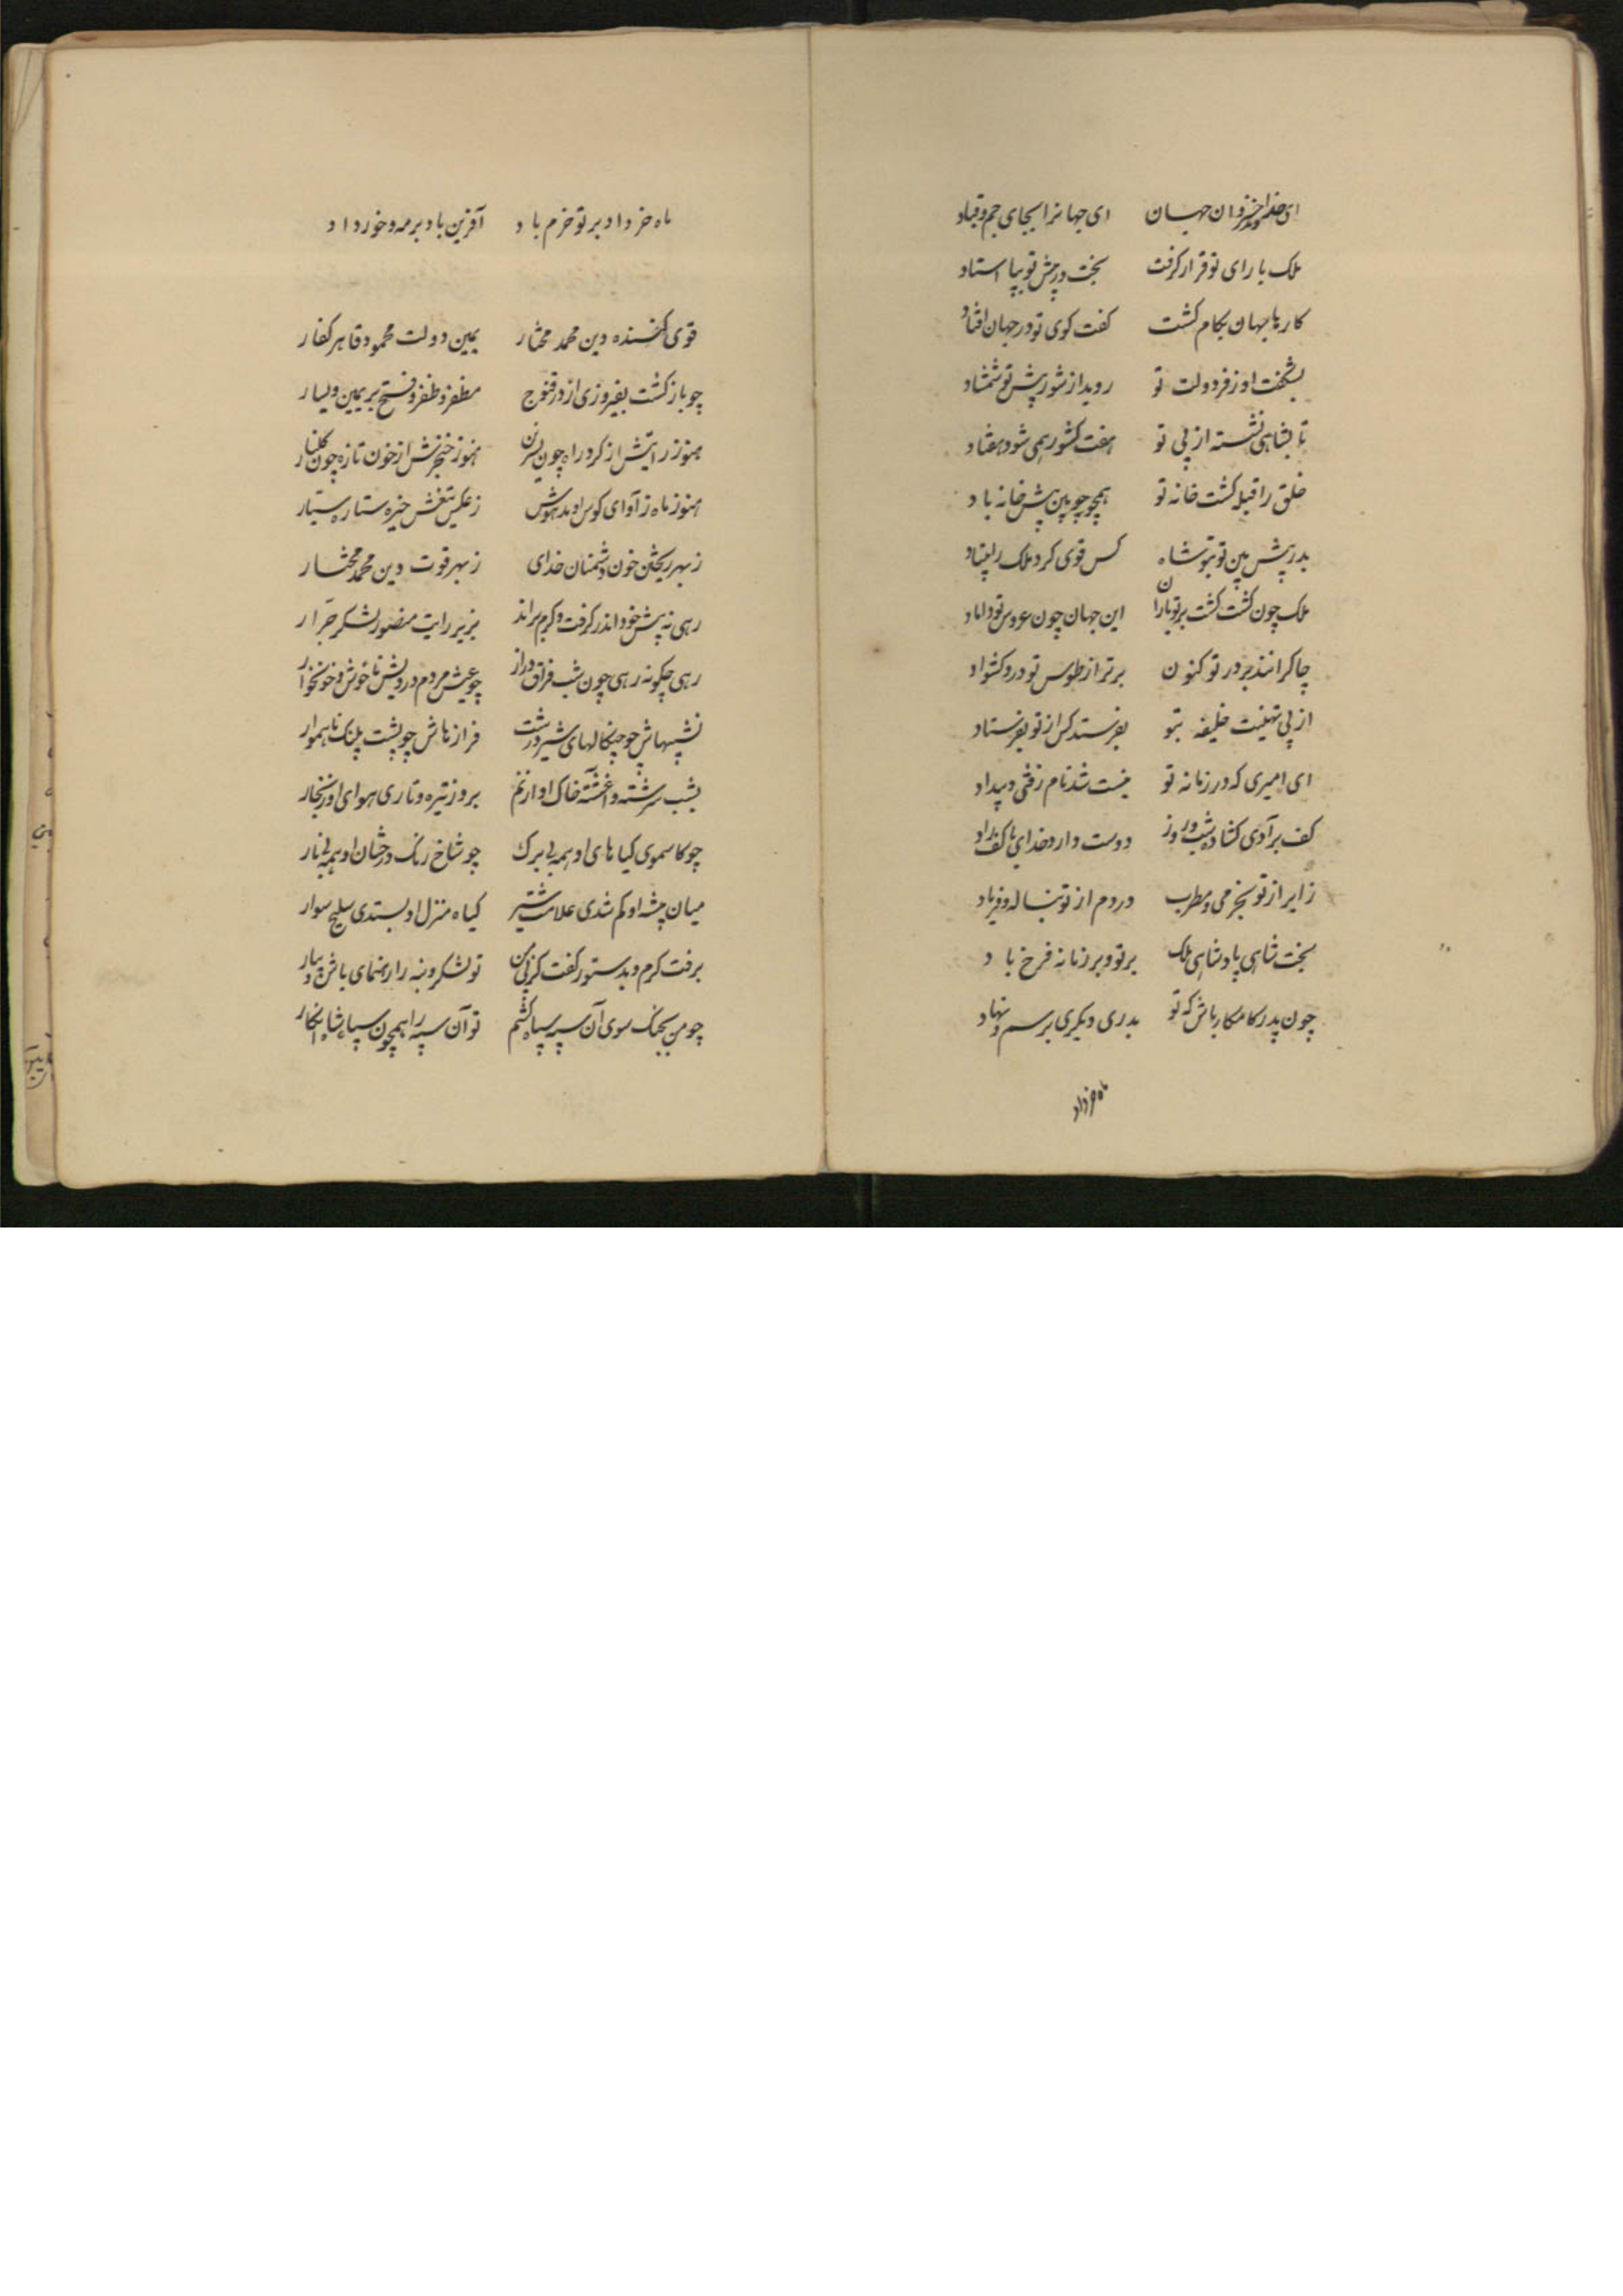 ای خداوند خسروان جهان ای جهانرا بجای جم و قباد
ملک با رای تو قرار گرفت بخت در پیش تو بپا استاد
کارهای جهان بکام گشت گفت کوی تو در جهان افتاد
بشگفت او ز فر دولت تو روید از شوره پیش تو شمشاد
تا بشاهی نشسته از پی تو هفت کشور همی شود هفتاد
خلق را قبله گشت خانه تو همچو زین پیش خانه باد
پدر پیش بین تو بتو شاه بس قوی کرد ملک را بنیاد
ملک چون کشت گشت بر تو باران این جهان چون عروس تو داماد
چاکرانند بر در تو کنون برتر از طوس نوذر و کشواد
از پی تهنیت خلیفه بتو بفرستد کس ار تو بفرستاد
ای امیری که در زمانه تو نیست شد نام زفتی و بیداد
کف برآدی گشاده شب و روز دوست دارد خدای با کف راد
زایر از تو بخرمی و مطرب درم از تو بناله و فریاد
بخت شاهی پادشاهی ملک بر تو و بر زمانه فرخ باد
چون پدر کامکار باش که تو پدری دیگری برسم و نهاد
ماه خرداد
ماه خرداد بر تو خرم باد آفرین باد بر مه و خورداد
قوی کننده دین محمد مختار یمین دولت محمود قاهر کفار
چو باز گشت بفیروزی از در قنوج مظفر و ظفر و فتح بر یمین و یسار
هنوز رایتش از گرد راه چون نسرین هنوز خنجرش از خون تازه چون گلنار
هنوز ماه ز آوای کوس او مدهوش ز عکس تیغش خیره ستاره سیار
ز بهر ریختن خون دشمنان خدای ز بهر قوت دین محمد مختار
رهی نه پیش خود اندر گرفت و گرم براند بزیر رایت منصور لشکر جرار
رهی چگونه رهی چون شب فراق دراز چو عیش مردم درویش ناخوش و خونخوار
نشیبهاش چو چنگالهای شیر درشت فرازهاش چو پشت پلنگ ناهموار
بشب سرشته و آغشته خاک او از نم بروز تیره و تاری هوای او ز بخار
چو کاسموی گیاهای او همه بی برگ چو شاخ رنگ درختان او همه بی بار
میان بیشه او گم شدی علامت شیر گیاه منزل او بستدی سلیح سوار
برفت گرم و بدستور گفت کز پی من تو لشکر و بنه را رهنمای باش و بیار
چو من بجنگ سوی آن سپه سپاه کشم تو آن سپه را همچون سپاه شاه انگار